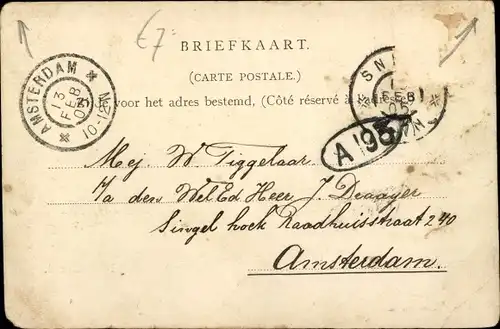 €7
BRIEFKAART.
(CARTE POSTALE.)
Zijde voor het adres bestemd, (Côté réservé à l'adresse
AMSTERDAM
13
FEB
10-12 N
FEB
A 195
Mej. W. Tiggelaar
p/a den WelEd Heer J. Draayer
Singel hoek Raadhuisstraat 240
Amsterdam.